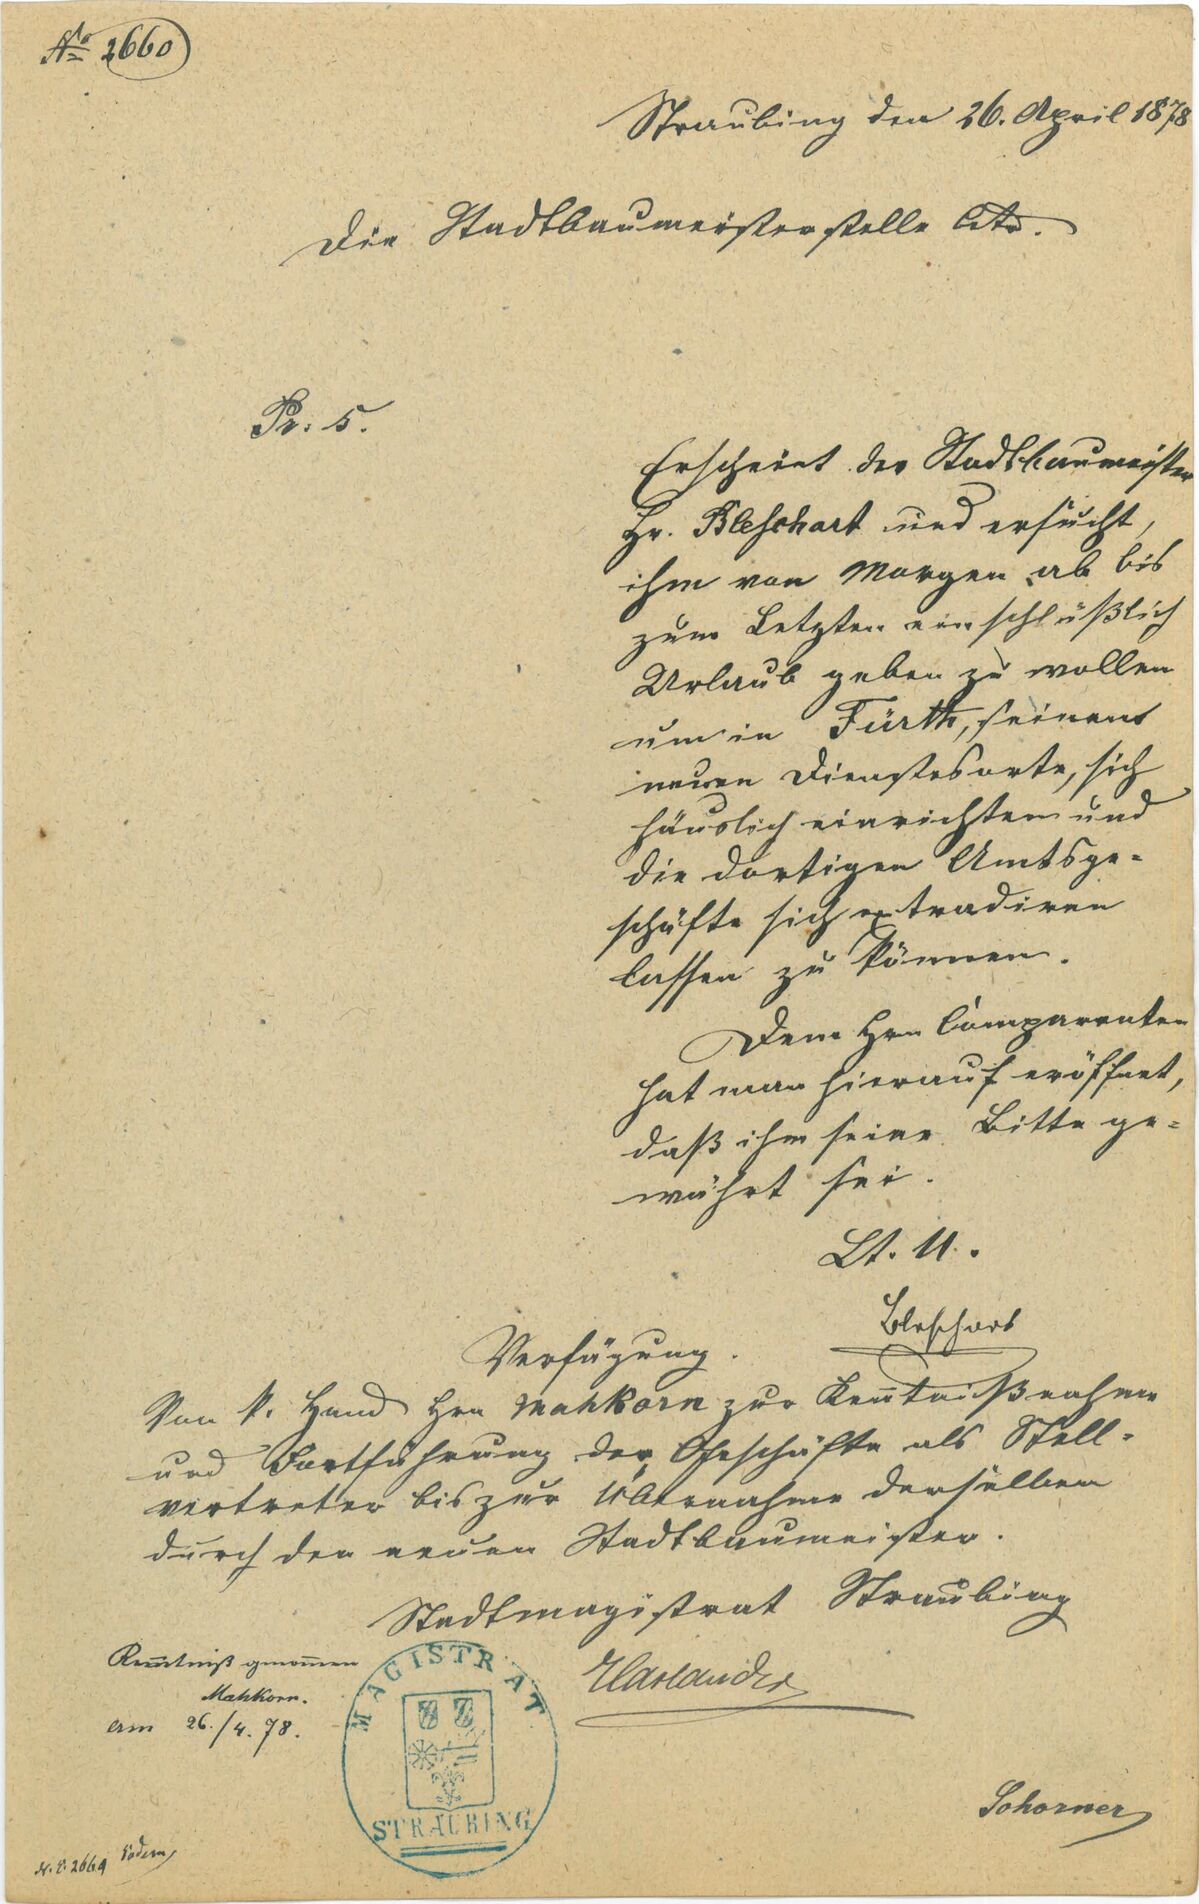 No 2660
Straubing den 26. April 1878
Die Stadtbaumeisterstelle btr.
Pr: 5.
Erscheint der Stadtbaumeister
Hr. Bleschart und ersucht,
ihm von Morgen ab bis
zum Letzten einschlüßlich
Urlaub geben zu wollen
um in Fürth, seinem
neuen Dienstesorte, sich
häuslich einrichten und
die dortigen Amtsge-
schäfte sich extradiren
lassen zu können.
Dem Hrn Comparenten
hat man hierauf eröffnet,
daß ihm seine Bitte ge-
währt sei.
Lt. U.
Bleschart
Verfügung.
Von k. Hand Hrn Mahkorn zur Kenntnißnahme
und Fortführung der Geschäfte als Stell-
vertreter bis zur Übernahme derselben
durch den neuen Stadtbaumeister.
Stadtmagistrat Straubing
Kenntniß genommen
Mahkorn.
am 26./4.78.
MAGISTRAT
STRAUBING
Harlander
Schorner
N. E. 2664